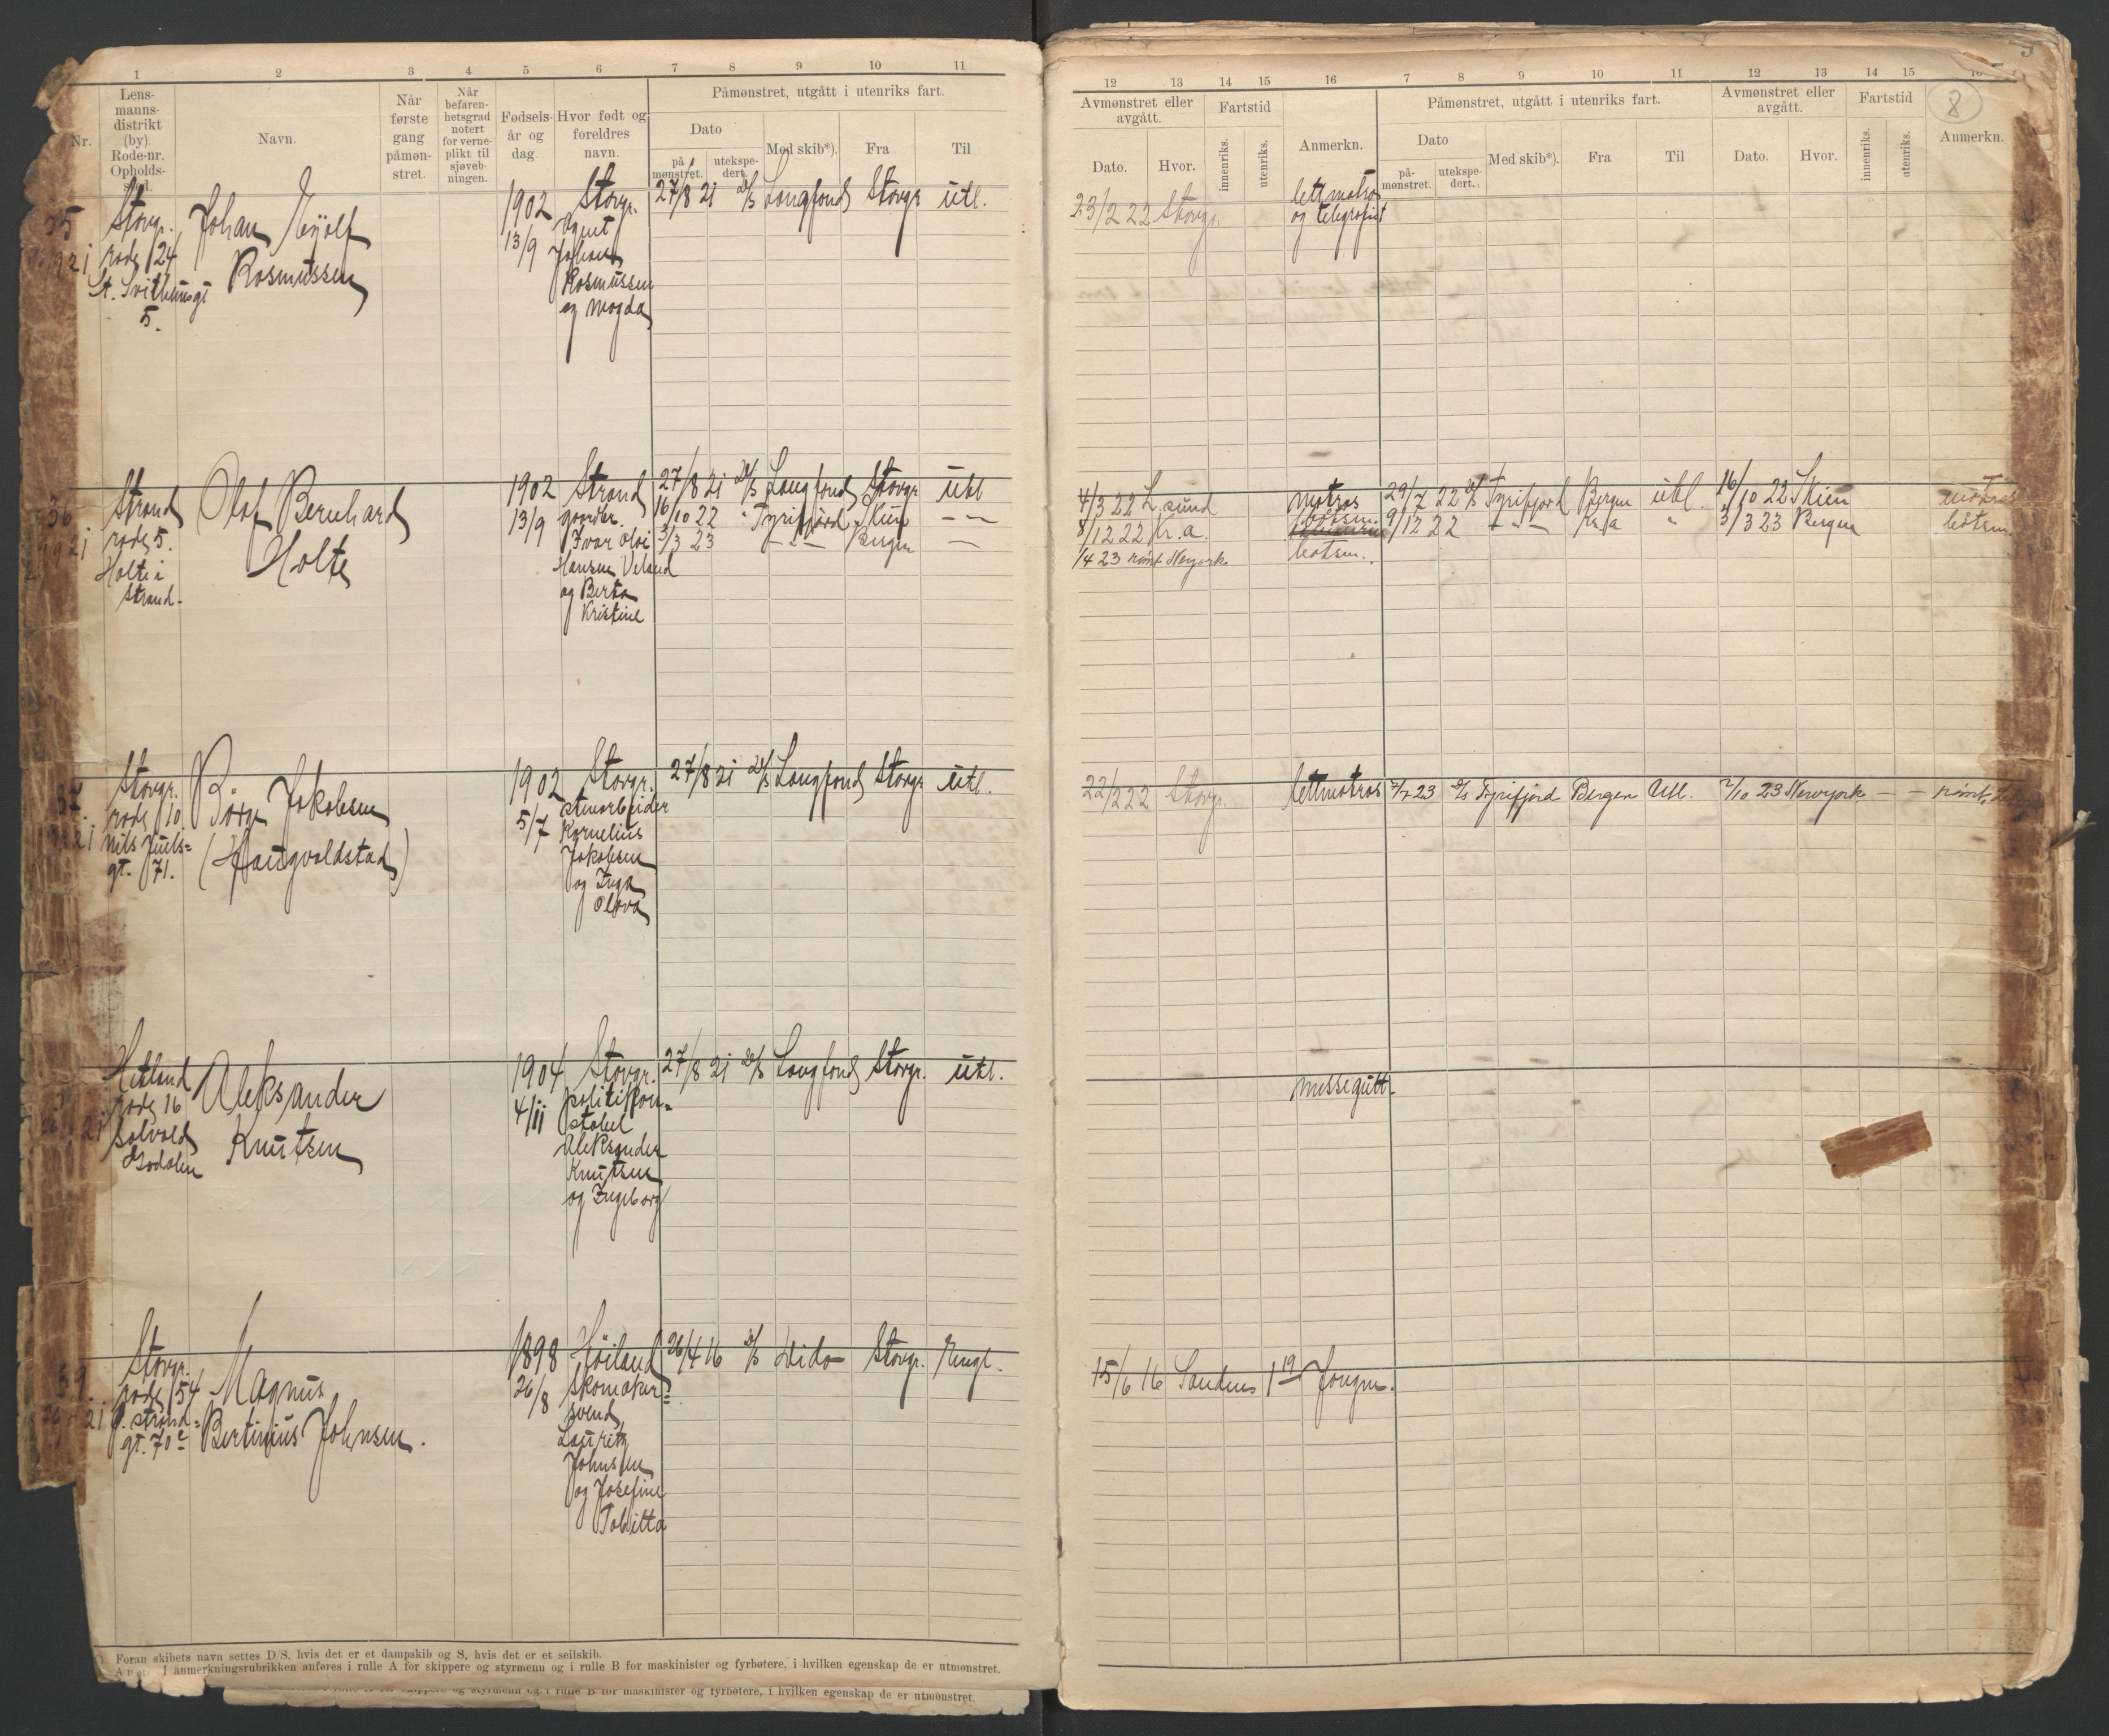 1 2 3 4 5 6 7 8 9 10 11
Nr.
Lens-
manns-
distrikt
(by).
Rode-nr.
Opholds-
sted.
Navn.
Når
første
gang
påmøn-
stret.
Når
befaren-
hetsgrad
notert
for verne-
plikt til
sjøveb-
ningen.
Fødsels-
år og
dag.
Hvor født og
foreldres
navn.
Påmønstret, utgått i utenriks fart.
Dato
på
mønstret.
utekspe-
dert.
Med skib*).
Fra
Til
35
Stavgr.
rode 24
St. Svithunsgt
5.
Johan Eyolf
Rasmussen
1902
13/9
Stavgr.
Agent
Johan
Rasmussen
og Magda
27/8 21 D/S Langfond Stavgr utl.
36
Strand
rode 5.
Holte i
Strand.
Olaf Bernhard
Holte
1902
13/9
Strand
gaardbr.
Ivar Olai
Hansen Veland
og Berta
Kristine
27/8 21 D/S Langfond Stavgr utl
16/10 22 " Tyrifjord Skien — —
3/3 23 — " — Bergen —
37
Stavgr.
rode 10
Nils Juels=
gt. 71.
Børge Jakobsen
(Haugvaldstad)
1902
5/7
Stavgr.
stenarbeider
Kornelius
Jakobsen
og Inga
Olava
27/8 21 D/S Langfond Stavgr utl.
Hetland
rode 16
Solvold
Godalen
Aleksander
Knutsen
1904
4/11
Stavgr.
politikon=
stabel
Aleksander
Knutsen
og Ingeborg
27/8 21 D/S Langfond Stavgr. utl.
39.
Stavgr.
rode 54
Ø. strand=
gt. 70
Magnus
Bertinius Johnsen.
1898
26/8
Høiland
Skomaker=
svend
Lauritz
Johnsen
og Josefine
Tobitta
26/4 16 D/S Wido Stavgr. Engl.
Foran skibets navn settes D/S, hvis det er et dampskib og S, hvis det er et seilskib.
I anmerkningsrubrikken anføres i rulle A for skippere og styrmenn og i rulle B for maskinister og fyrbøtere, i hvilken egenskap de er utmønstret.
skippere og styrmenn og i rulle B for maskinister og fyrbøtere, i hvilken egenskap de er utmønstret.
12 13 14 15 16 7 8 9 10 11 12 13 14 15 16
8
Avmønstret eller
avgått.
Dato.
Hvor.
Fartstid
innenriks.
utenriks.
Anmerkn.
Påmønstret, utgått i utenriks fart.
Dato
på-
mønstret.
utekspe-
dert.
Med skib*).
Fra
Til
Avmønstret eller
avgått.
Dato.
Hvor.
Fartstid
innenriks.
utenriks.
Anmerkn.
23/2 22 Stavgr. lettmatros
og telegrafist
4/3 22 L.sund matros 29/7 22 D/S Tyrifjord Bergen utl. 16/10 22 Skien matros
8/12 22 Kr.a. båtsm. 9/12 22 — " — Kr.a " 3/3 23 Bergen båtsm.
1/4 23 rømt Newyork båtsm.
22/2 22 Stavgr. lettmatros 7/7 23 D/S Tyrifjord Bergen Utl. 2/10 23 Newyork — — rømt
messegutt.
15/6 16 Sandnes 1 19 Jongm.